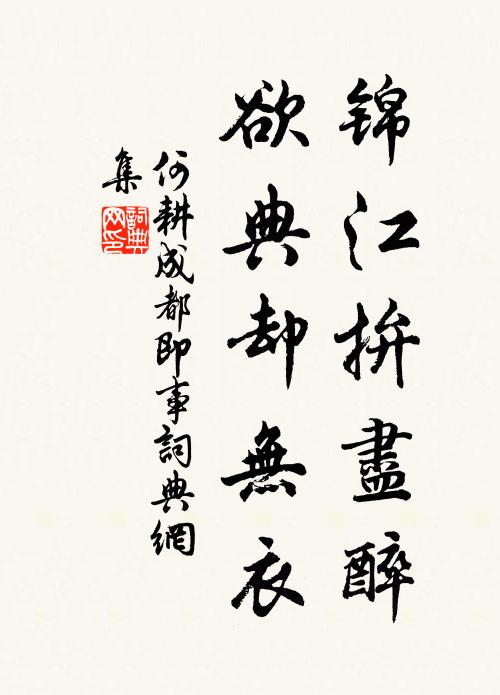 锦江拚盡醉
欲典却無衣
何耕成都即事詞典網
集
詞典网印